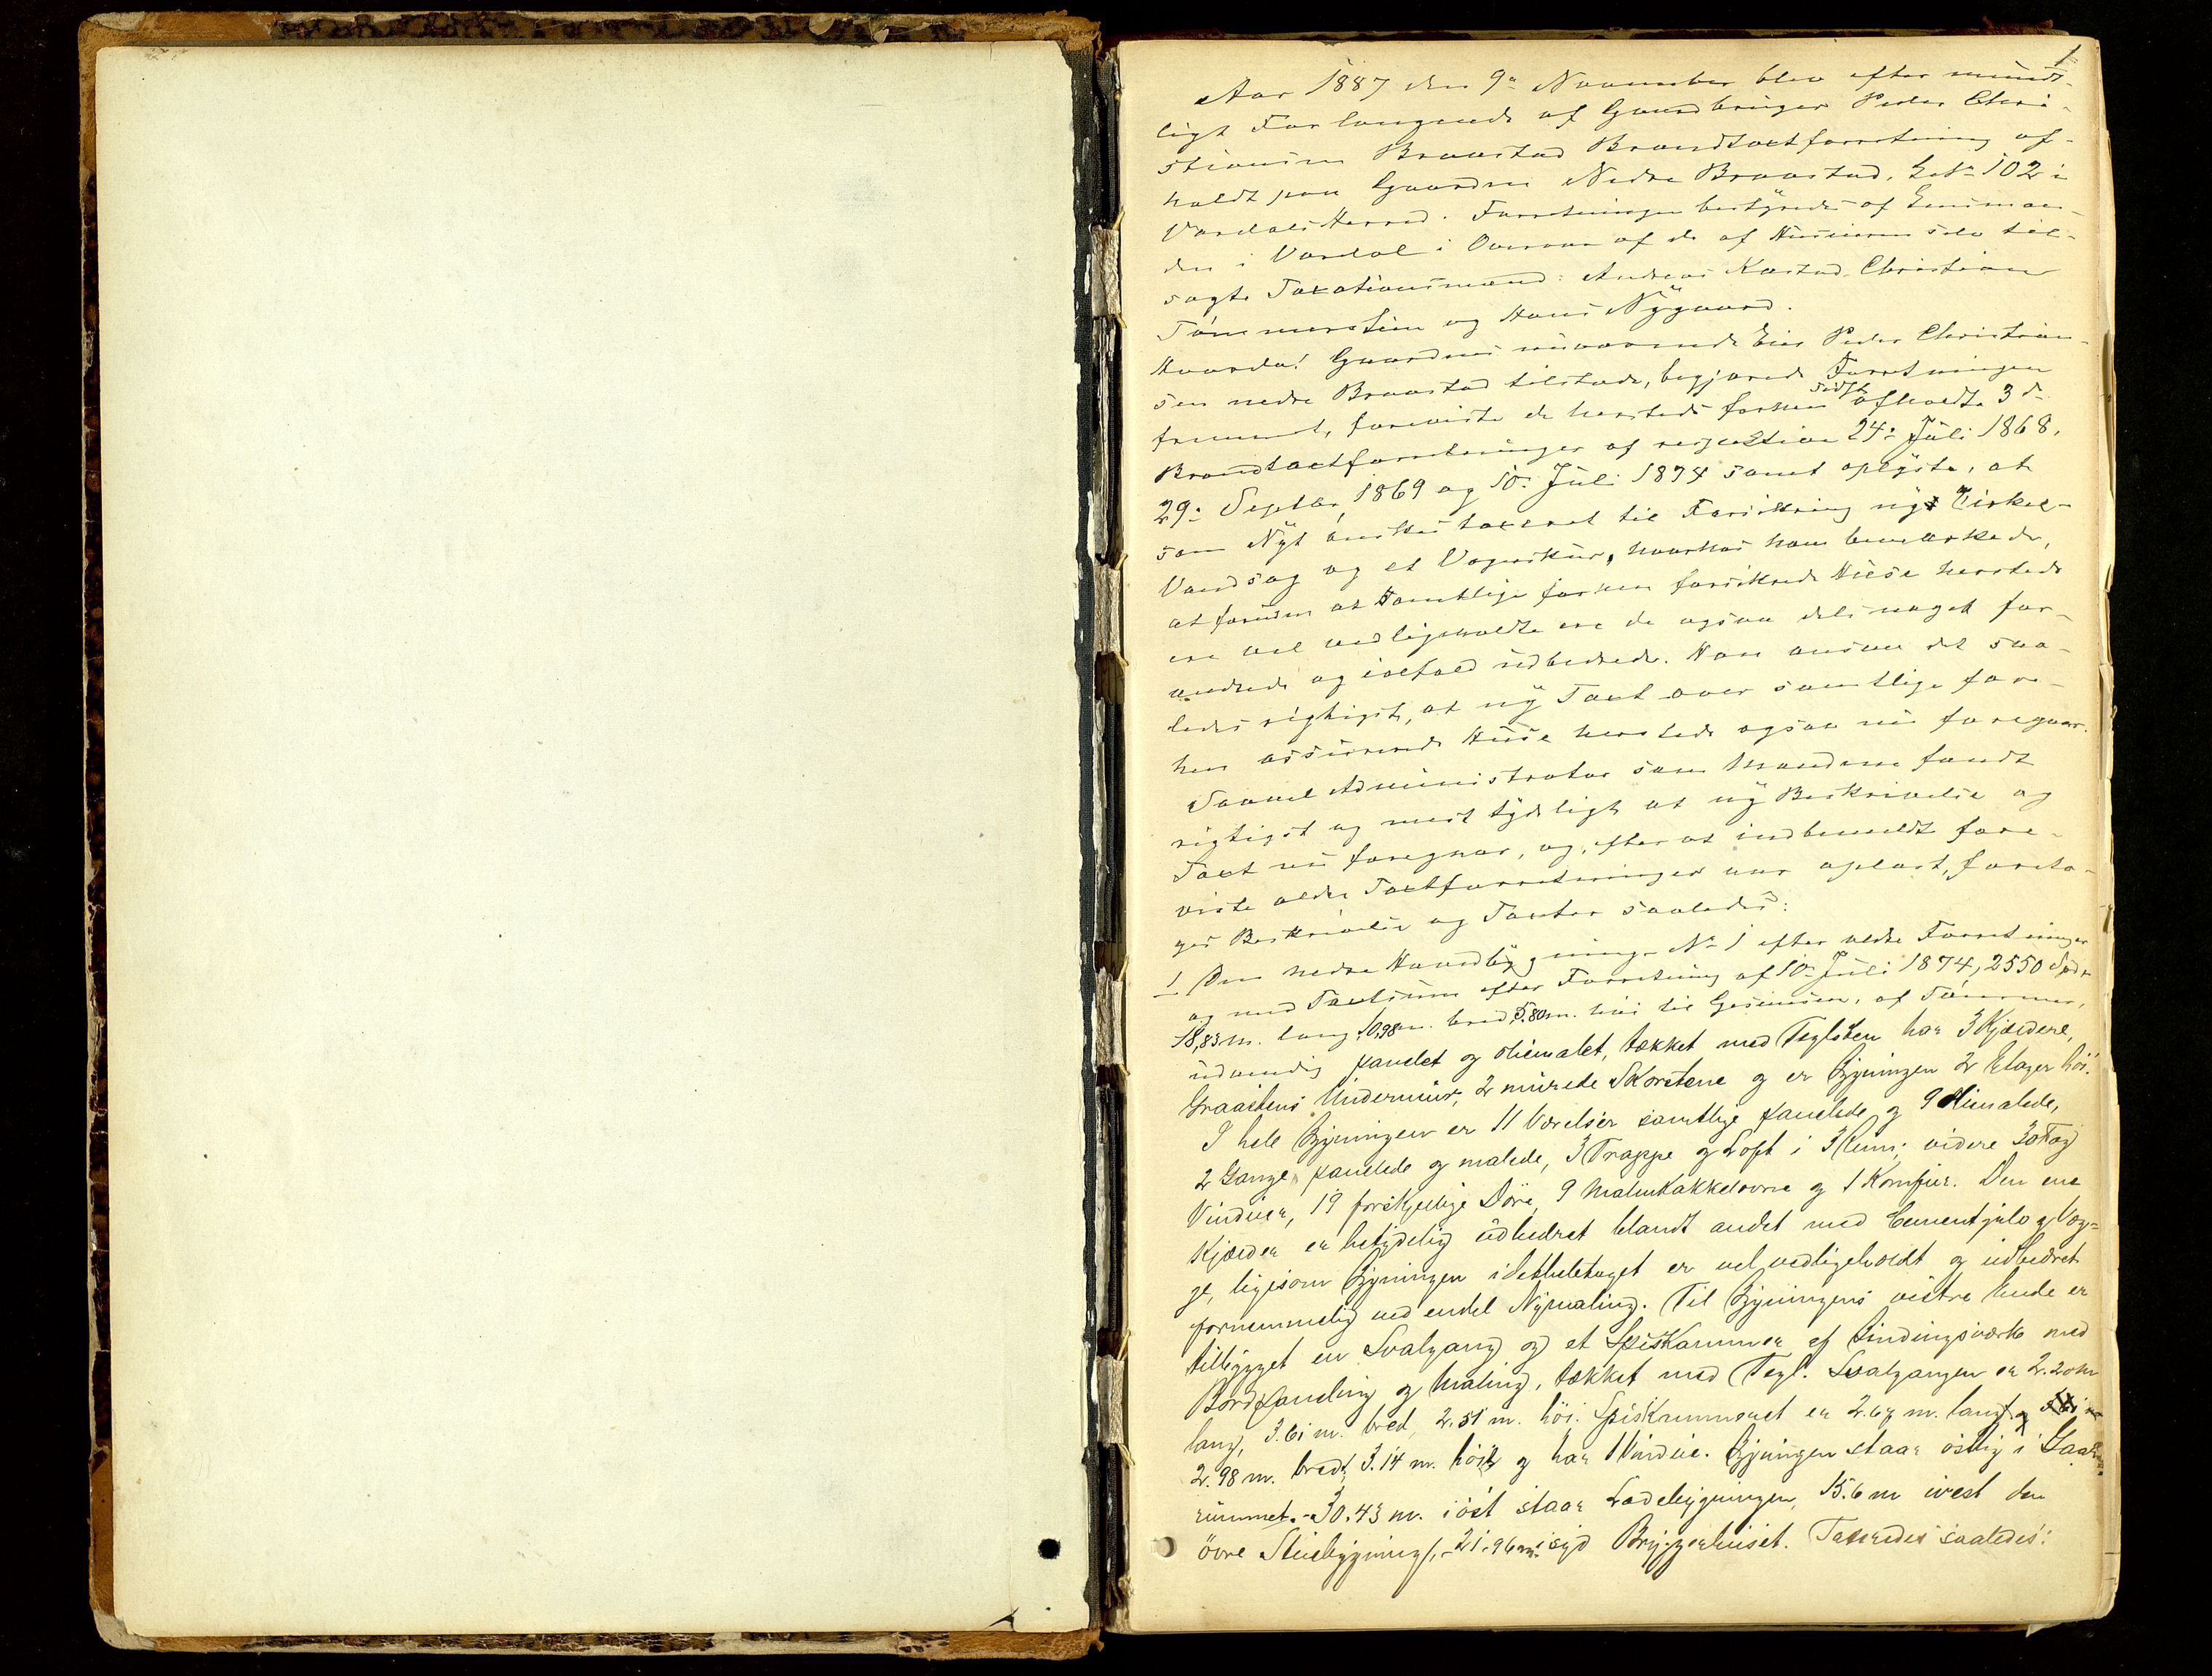 1
Aar 1887 den 9de November blev efter mundt-
ligt Forlangende af Gaardbruger Peder Chri-
stiansen Braastad Brandtaxtforretning af-
holdt paa Gaarden Nedre Braastad, L.No 102 i
Vardals Herred. Forretningen bestyredes af Lensman-
den i Vardal i Overvær af de af Huseieren selv til-
sagte Taxationsmænd: Andreas Kastad, Christian
Tømmerstuen og Hans Nÿgaard.
Hvorda! Gaardens nuværende Eier Peder Christian-
sen nedre Braastad tilstede, begjærede Forretningen
fremmet, foreviste de hersteds forhen sidst afholdte 3de
Brandtaxtforretninger af respective 24de Juli 1868,
29de Septbr 1869 og 10de Juli 1874 samt oplÿste, at
som Nÿt ønskes taxeret til Forsikring nÿ Cirkel-
Vandsag og et Vognskur, hvorhos han bemærkede,
at foruden at samtlige forhen forsikrede Huse hersteds
ere vel vedligeholdte ere de ogsaa dels noget for-
andrede og ialfald udbedrede. Han ansaa det saa-
ledes rigtigst, at nÿ Taxt over samtlige for-
hen assurerede Huse hersteds ogsaa nu foregaar.
Saavel Administrator som Mændene fandt
rigtigst og mest tÿdeligt at nÿ Beskrivelse og
Taxt nu foregaar, og, efter at indbemeldte fore-
viste ældre Taxtforretninger var oplæst, foreto-
ges Beskrivelse og Taxter saaledes:
1 Den nedre Hovedbÿgning No 1 efter ældre Forretninger
og med Taxtsum efter Forretning af 10de Juli 1874, 2550 Spdr
18,83 m. lang, 10,98 m. bred, 5.80 m. høi til Gesimsen, af Tømmer,
udvendig panelet og oliemalet, tækket med Teglsten har 3 Kjældere,
Graastens Undermur, 2 murede Skorstene og er Bygningen 2 Etager høi.
I hele Bygningen er 11 Værelser samtlige panelede og 9 Oliemalede,
2 Gange panelede og malede, 3 Trappe og Loft i 3 Rum; videre 30 Fag
Vinduer, 19 forskjellige Døre, 9 Malmkakkelovne og 1 Komfur. Den ene
Kjælder er betydelig udbedret blandt andet med Cementgulv og Væg-
ge, ligesom Bygningen idethele taget er vel vedligeholdt og udbedret
fornemmelig ved endel Nymaling. Til Bygningens vestre Ende er
tilbygget en Svalgang og et Spiskammer af Bindingsværk med
Bordpaneling og Maling, tækket med Tegl. Svalgangen er 2.20 m
lang, 3.61 m. bred, 2.51 m. høi. Spiskammeret er 2.67 m. langt,
2.98 m. bredt, 3.14 m. høit og har 1 Vindue. Bygningen staar østlig i Gaards-
rummet. - 30.43 m. i øst staar Ladebygningen, 15.6 m ivest den
øvre Stuebygning, - 21.96 m i syd Bryggerhuset. Taxeredes saaledes: